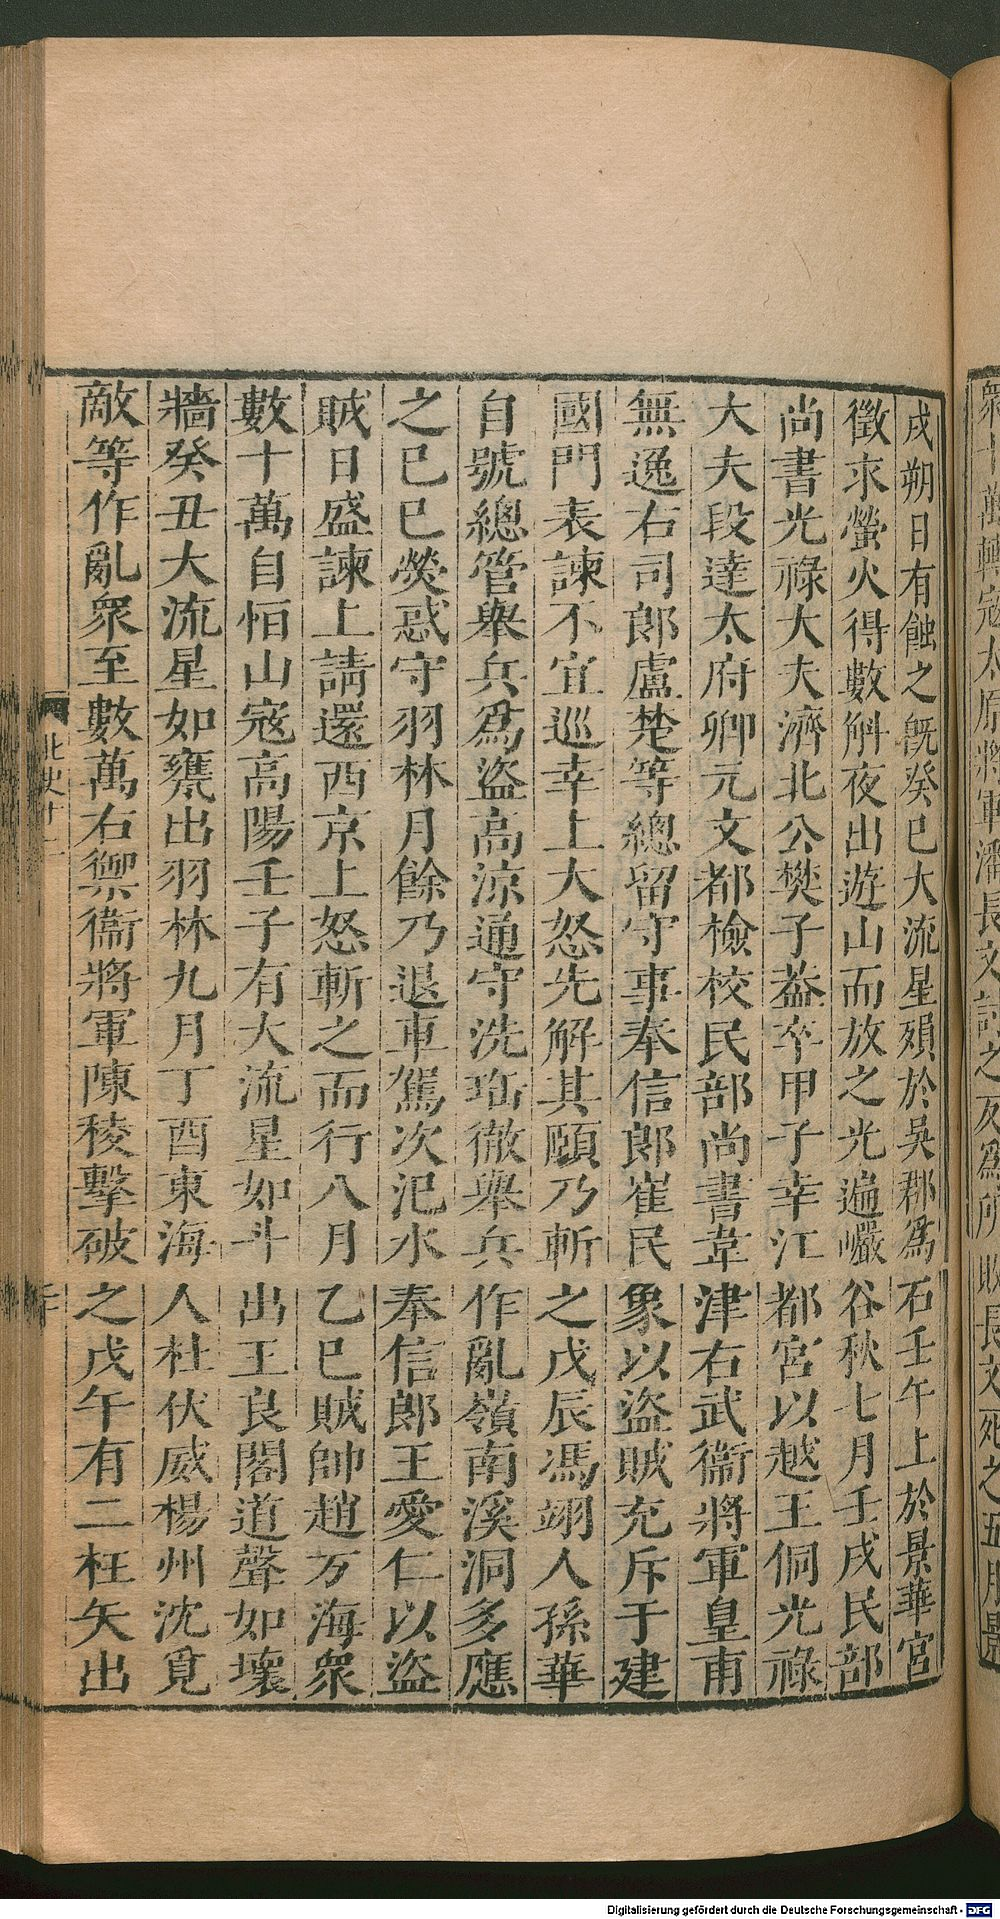 戌朔日有蝕之旣癸巳大流星殞於吳郡爲石壬午上於景華宮
徵求螢火得數斛夜出遊山而放之光遍巖谷秋七月壬戌民部
尚書光祿大夫濟北公樊子葢卒甲子幸江都宮以越王侗光祿
大夫段達太府卿元文都檢校民部尚書韋津右武衞將軍皇甫
無逸右司郎盧楚等總留守事奉信郎崔民象以盜賊充斥于建
國門表諫不宜巡幸上大怒先解其頤乃斬之戊辰馮翊人孫華
自號總管舉兵爲盜高凉通守洗珤徹舉兵作亂嶺南溪洞多應
之己巳熒惑守羽林月餘乃退車駕次汜水奉信郎王愛仁以盜
賊日盛諫上請還西京上怒斬之而行八月乙巳賊帥趙万海衆
數十萬自恒山寇高陽壬子有大流星如斗出王良閣道聲如壞
牆癸丑大流星如甕出羽林九月丁酉東海人杜伏威楊州沈覓
敵等作亂衆至數萬右禦衞將軍陳稜擊破之戊午有二枉矢出
北史十二
Digitalisierung gefördert durch die Deutsche Forschungsgemeinschaft - DFG